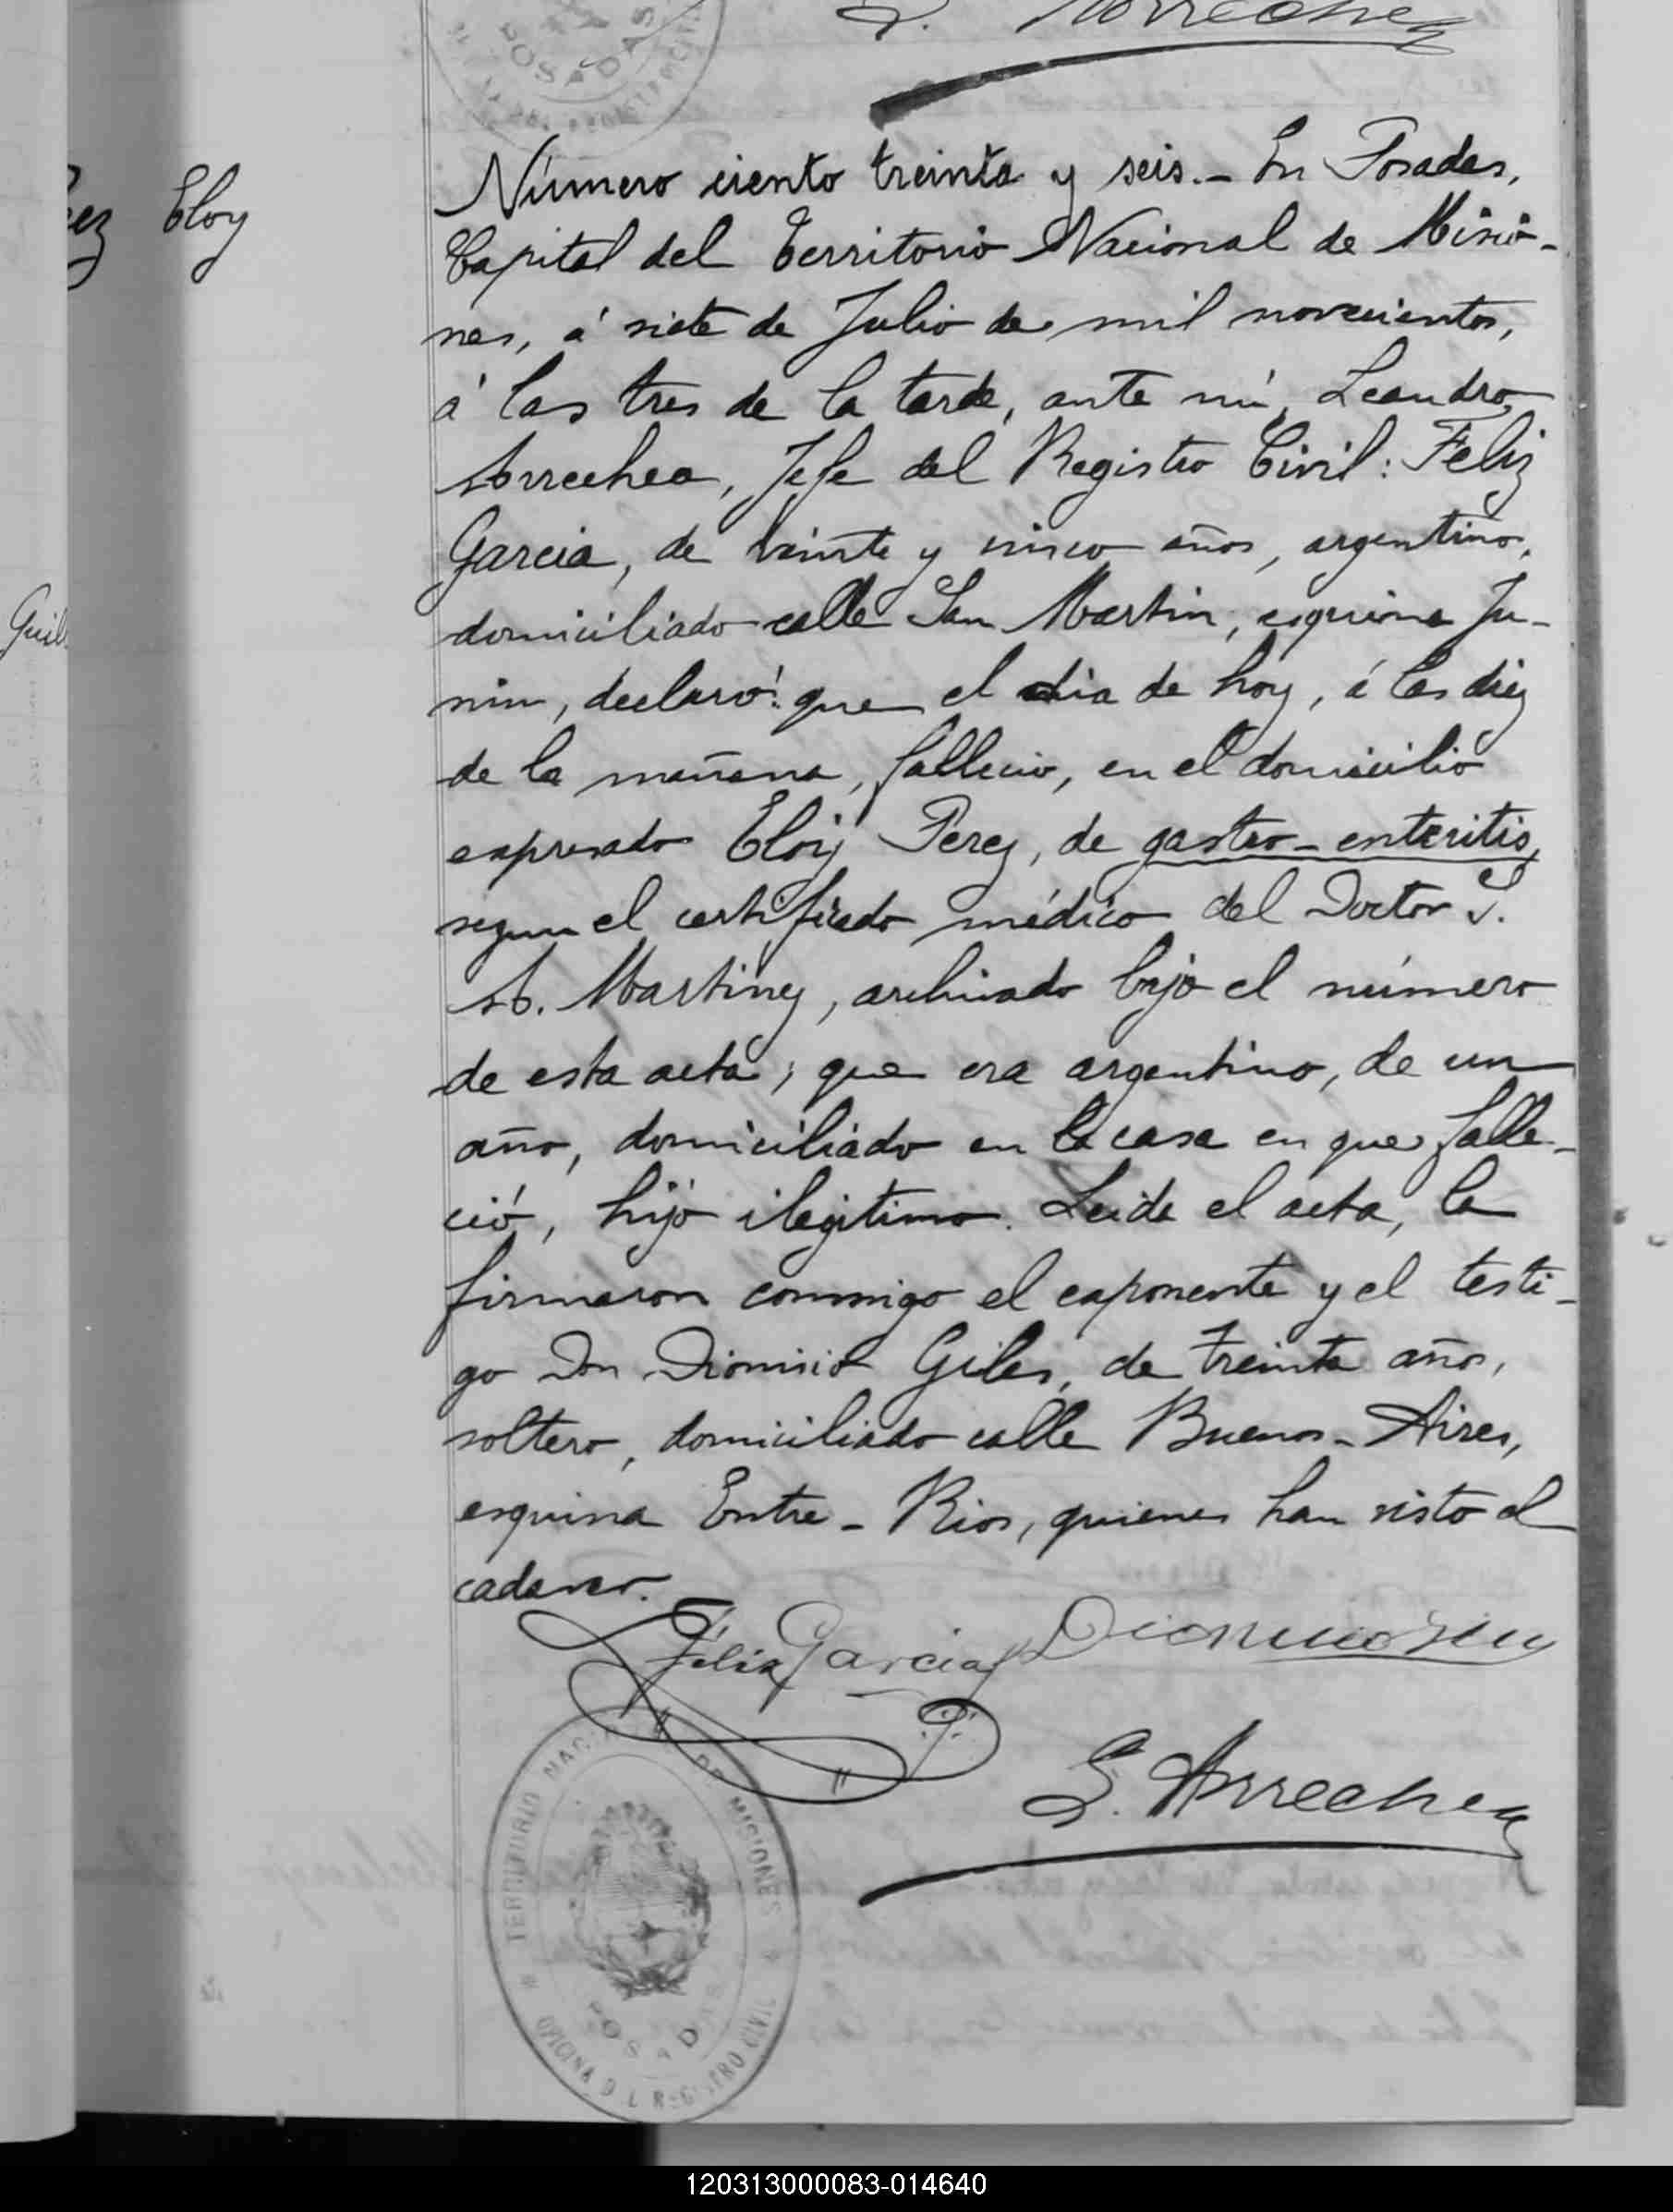 POSADAS
L. Arrechea
Número ciento treinta y seis.- En Posadas,
Capital del Territorio Nacional de Misio-
nes, á siete de Julio de mil novecientos,
á las tres de la tarde, ante mí, Leandro
Arrechea, Jefe del Registro Civil: Feliz
Garcia, de veinte y cinco años, argentino,
domiciliado calle San Martin, esquina Ju-
nin, declaró: que el dia de hoy, á las diez
de la mañana, fallecio, en el domicilio
expresado Eloy Perez, de gastro-enteritis,
segun el certificado médico del Doctor
A. Martinez, archivado bajo el número
de esta acta; que era argentino, de un
año, domiciliado en la casa en que falle-
ció, hijo ilegitimo. Leida el acta, la
firmaron conmigo el exponente y el testi-
go Don Dionisio Giles, de treinta años,
soltero, domiciliado calle Buenos-Aires,
esquina Entre-Rios, quienes han visto el
cadaver.
Eloy
Félix Garcia
L. Arrechea
TERRITORIO NACIONAL DE MISIONES
POSADAS
OFICINA DEL REGISTRO CIVIL
120313000083-014640